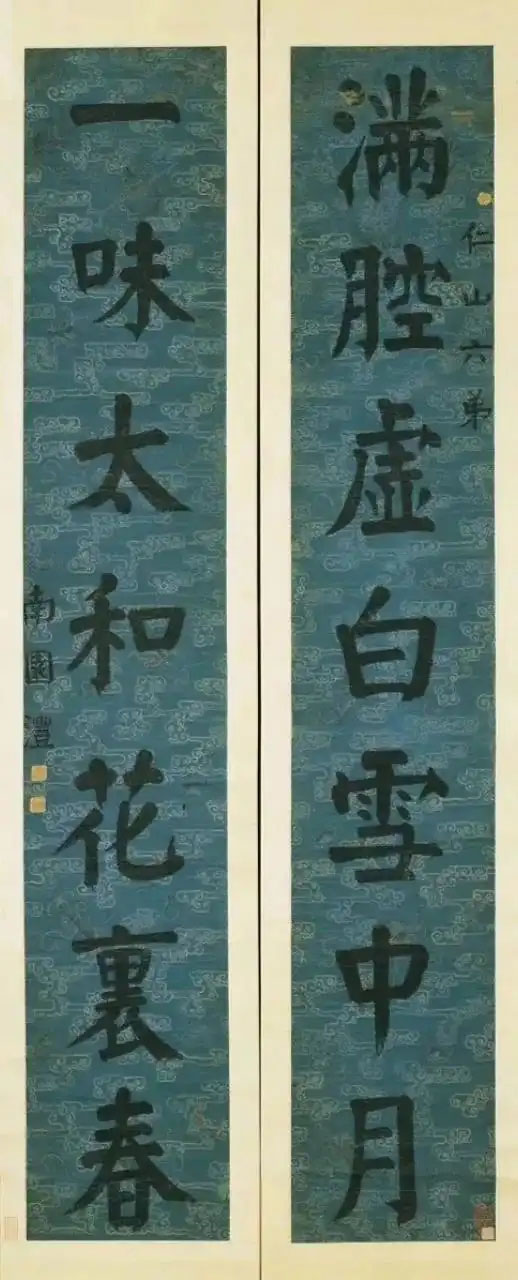 仁山六弟
满腔虚白雪中月
一味太和花裏春
南園灃